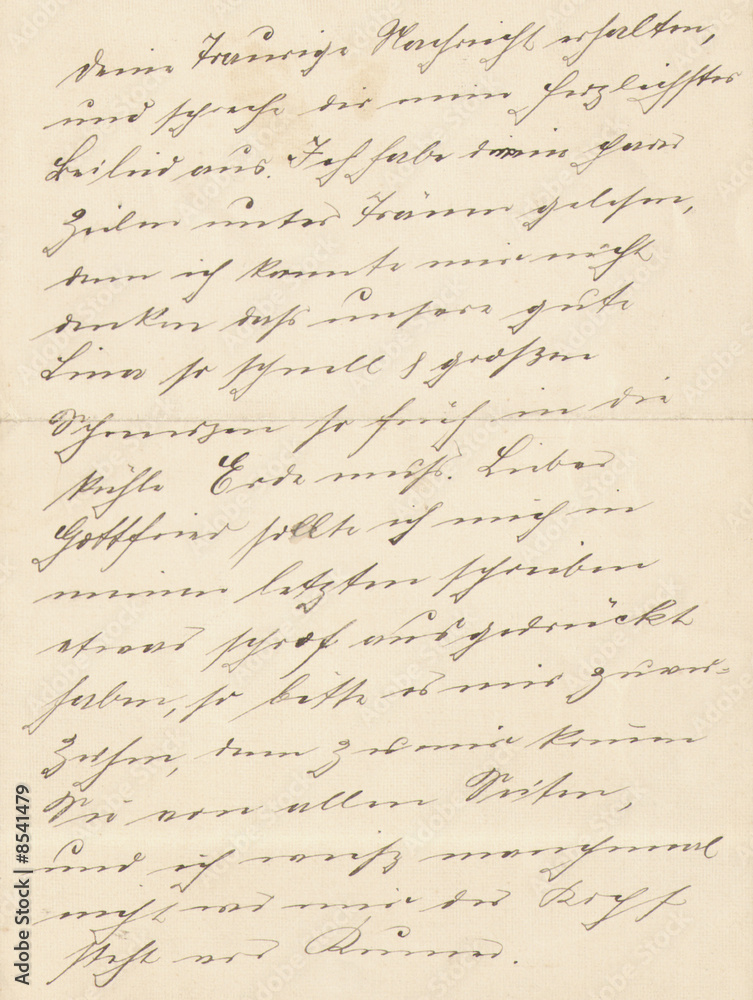 deine Traurige Nachricht erhalten,
und spreche dir mein herzlichstes
Beileid aus. Ich habe die paar
Zeilen unter Tränen gelesen,
denn ich konnte mir nicht
denken daß unsere gute
Lina so schnell & großen
Schmerzen so früh in die
kühle Erde muß. Lieber
Gottfried sollte ich mich in
meinem letzten schreiben
etwas schrof ausgedrückt
haben, so bitte es mir zuver-
Zeihen, denn zu mir komm
Sie von allen Seiten,
und ich weiß manchmal
nicht wo mir der Kopf
steht vor Kummer.
Adobe Stock | #8541479